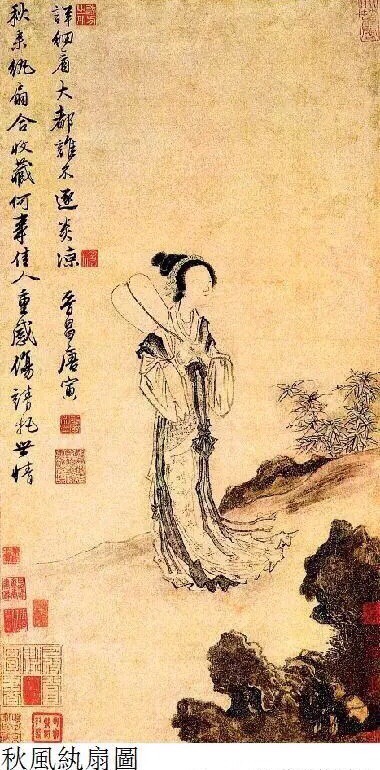 秋來紈扇合收藏何事佳人重感傷請把世情
詳細看大都誰不逐炎涼 晉昌唐寅
秋風紈扇圖